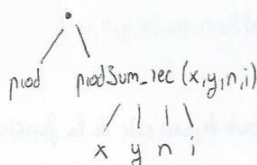 •
prod prodSum_rec (x,y,n,i)
x y n i